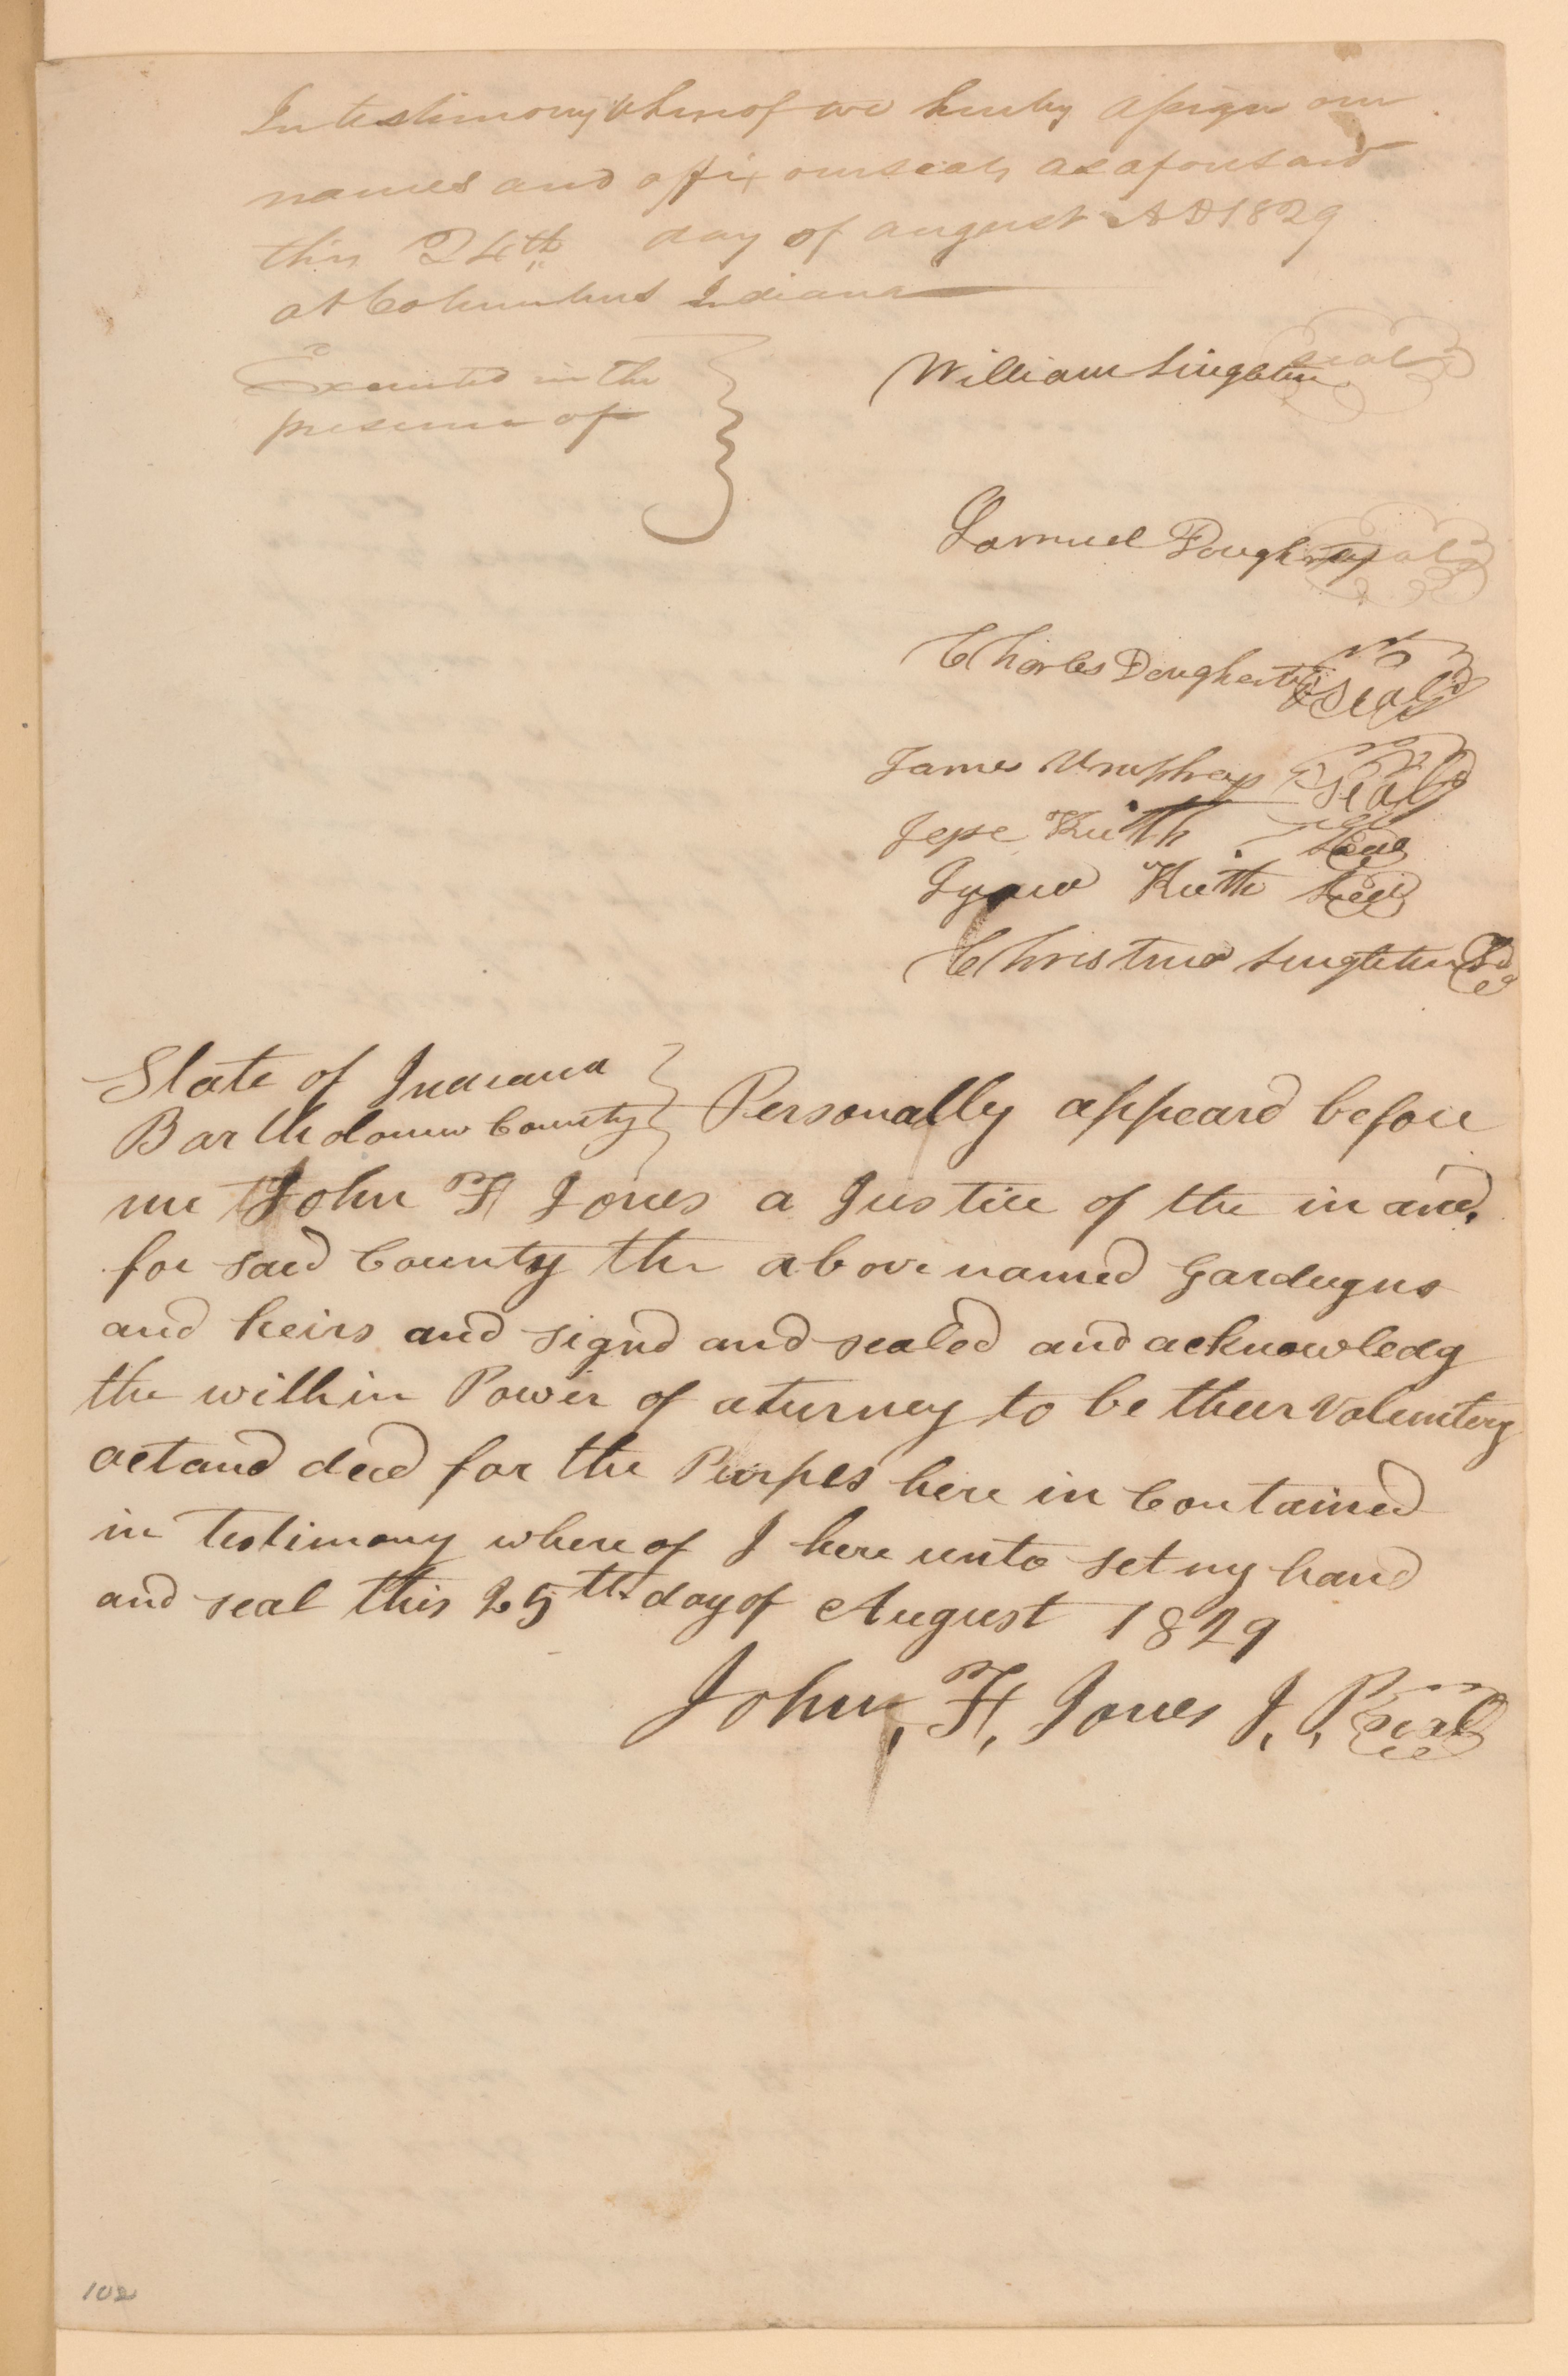 In testimony Whereof we hereby assign our
names and affix our seals as aforesaid
this 24th day of august AD 1829
at Columbus Indiana
Executed in the
presence of
William Singleton seal
Samuel Dougherty seal
Charles Dougherty seal
James Umphrey seal
Jesse Keith seal
Keith seal
Christina Singleton
State of Indiana
Bartholomew County Personally appeard before
me John F Jones a Justice of the in and
for said County the above named Gardeugns
and heirs and signd and sealed and acknowledg
the within Power of aturney to be their Voluntery
act and deed for the Purpes here in Contained
in Testimony where of I here unto set my hand
and seal this 25th day of August 1829
John, F, Jones J, P, seal
102